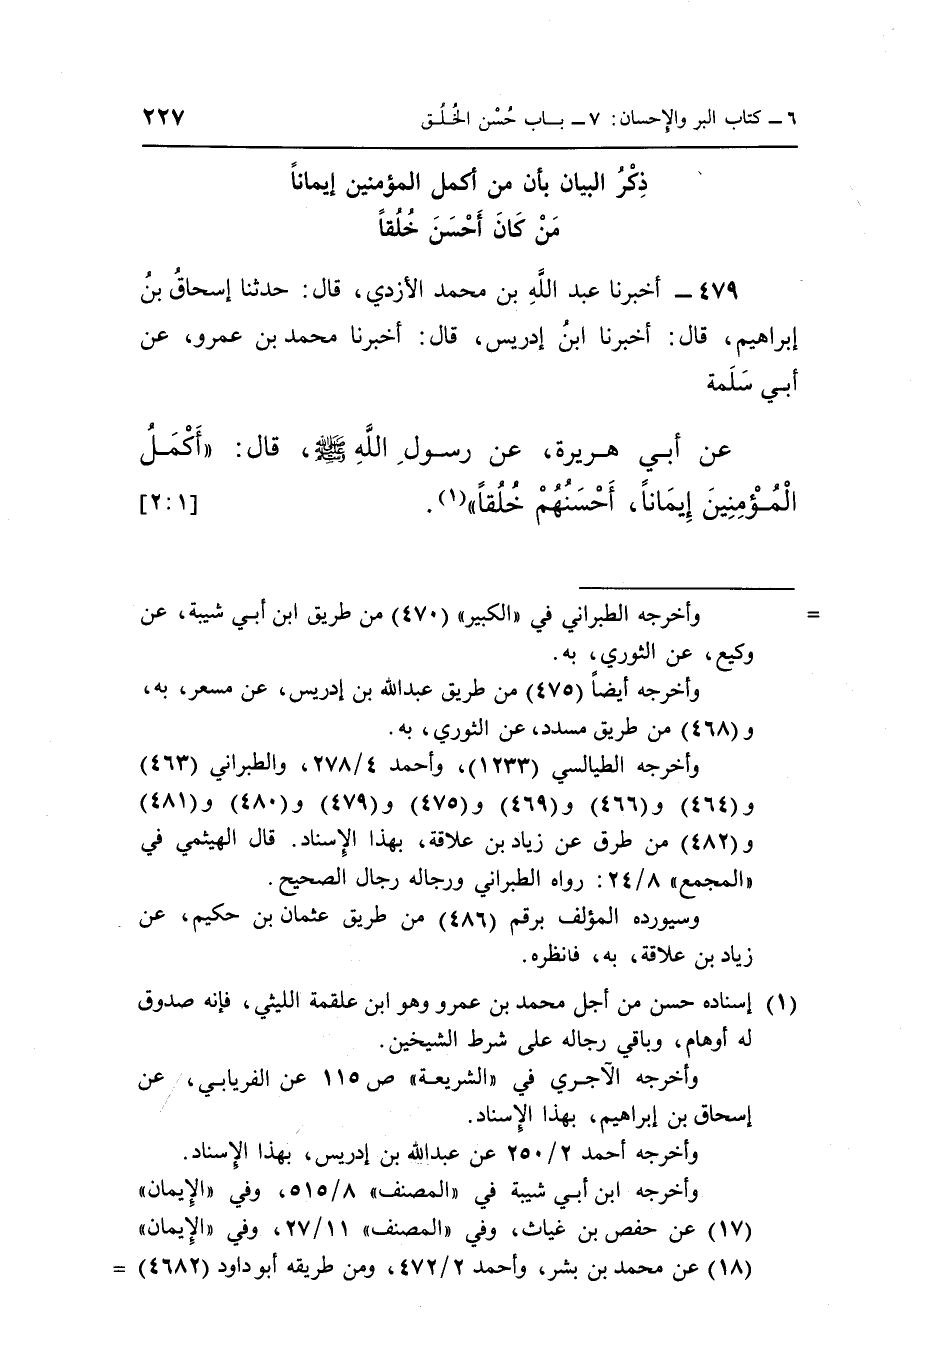 ٦ ـ كتاب البر والإحسان: ٧ ـ بـاب حُسْن الخُلُق ٢٢٧
ذِكْرُ البيان بأن من أكمل المؤمنين إيماناً
مَنْ كَانَ أَحْسَنَ خُلُقاً
٤٧٩ ـ أخبرنا عبد اللَّهِ بن محمد الأزدي، قال: حدثنا إسحاقُ بنُ
إبراهيم، قال: أخبرنا ابنُ إدريس، قال: أخبرنا محمد بن عمرو، عن
أبـي سَلَمة
عن أبـي هـريرة، عن رسـولِ اللَّهِ ﷺ، قال: «أَكْمَـلُ
الْمُـؤْمِنِينَ إِيمَاناً، أَحْسَنُهُمْ خُلُقاً»(١). [٢:١]
= وأخرجه الطبراني في «الكبير» (٤٧٠) من طريق ابن أبـي شيبة، عن
وكيع، عن الثوري، به.
وأخرجه أيضاً (٤٧٥) من طريق عبدالله بن إدريس، عن مسعر، به،
و (٤٦٨) من طريق مسدد، عن الثوري، به.
وأخرجه الطيالسي (١٢٣٣)، وأحمد ٢٧٨/٤، والطبراني (٤٦٣)
و (٤٦٤) و(٤٦٦) و(٤٦٩) و(٤٧٥) و(٤٧٩) و(٤٨٠) و(٤٨١)
و (٤٨٢) من طرق عن زياد بن علاقة، بهذا الإسناد. قال الهيثمي في
«المجمع» ٢٤/٨: رواه الطبراني ورجاله رجال الصحيح.
وسيورده المؤلف برقم (٤٨٦) من طريق عثمان بن حكيم، عن
زياد بن علاقة، به، فانظره.
(١) إسناده حسن من أجل محمد بن عمرو وهو ابن علقمة الليثي، فإنه صدوق
له أوهام، وباقي رجاله على شرط الشيخين.
وأخرجه الآجري في «الشريعـة» ص ١١٥ عن الفريابي، عن
إسحاق بن إبراهيم، بهذا الإسناد.
وأخرجه أحمد ٢٥٠/٢ عن عبدالله بن إدريس، بهذا الإسناد.
وأخرجه ابن أبـي شيبة في «المصنف» ٥١٥/٨، وفي «الإيمان»
(١٧) عن حفص بن غياث، وفي «المصنف» ٢٧/١١، وفي «الإيمان»
(١٨) عن محمد بن بشر، وأحمد ٤٧٢/٢، ومن طريقه أبو داود (٤٦٨٢) =